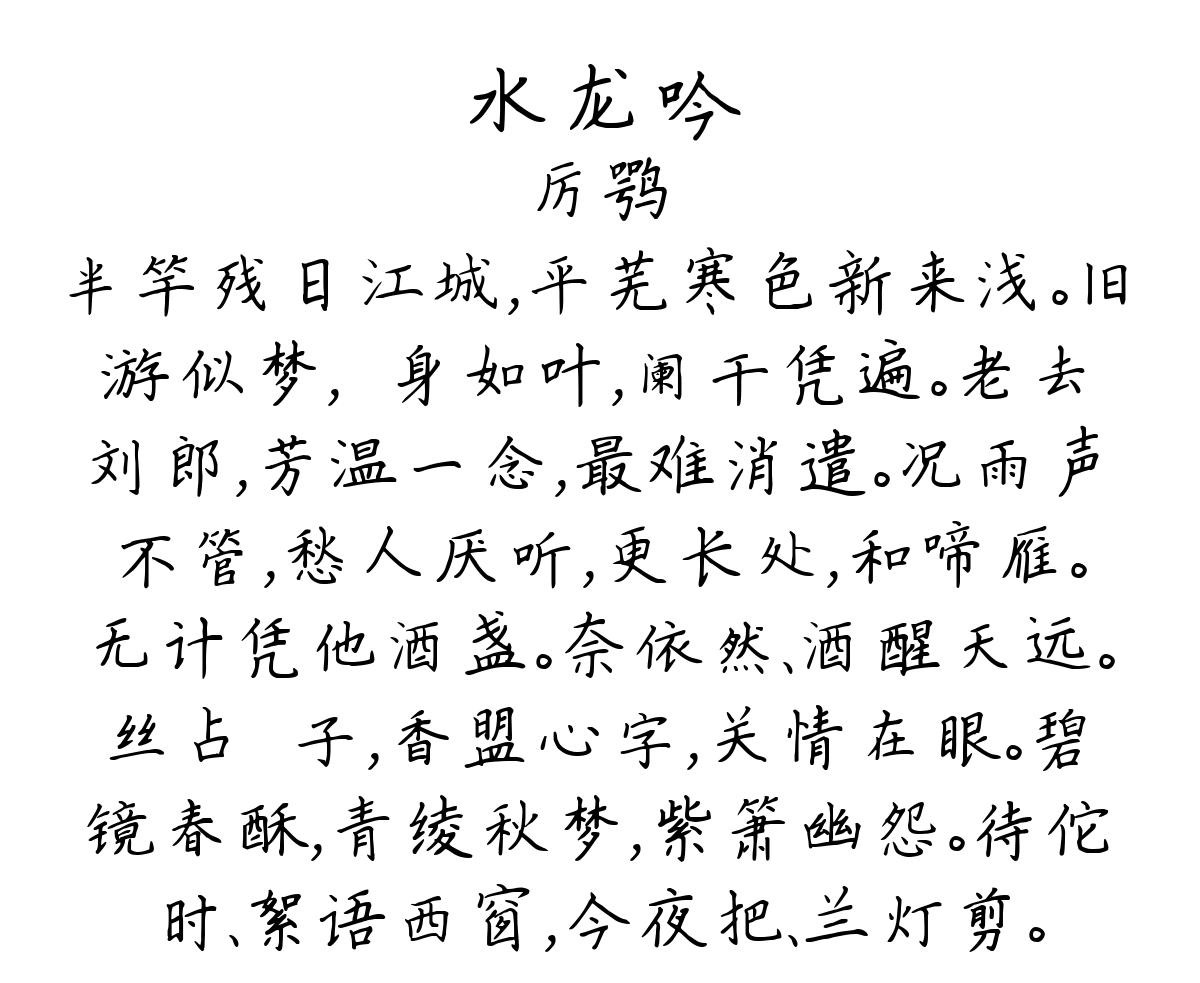 水龙吟
厉鹗
半竿残日江城,平芜寒色新来浅。旧
游似梦, 身如叶,阑干凭遍。老去
刘郎,芳温一念,最难消遣。况雨声
不管,愁人厌听,更长处,和啼雁。
无计凭他酒盏。奈依然、酒醒天远。
丝占 子,香盟心字,关情在眼。碧
镜春酥,青绫秋梦,紫箫幽怨。待佗
时、絮语西窗,今夜把、兰灯剪。